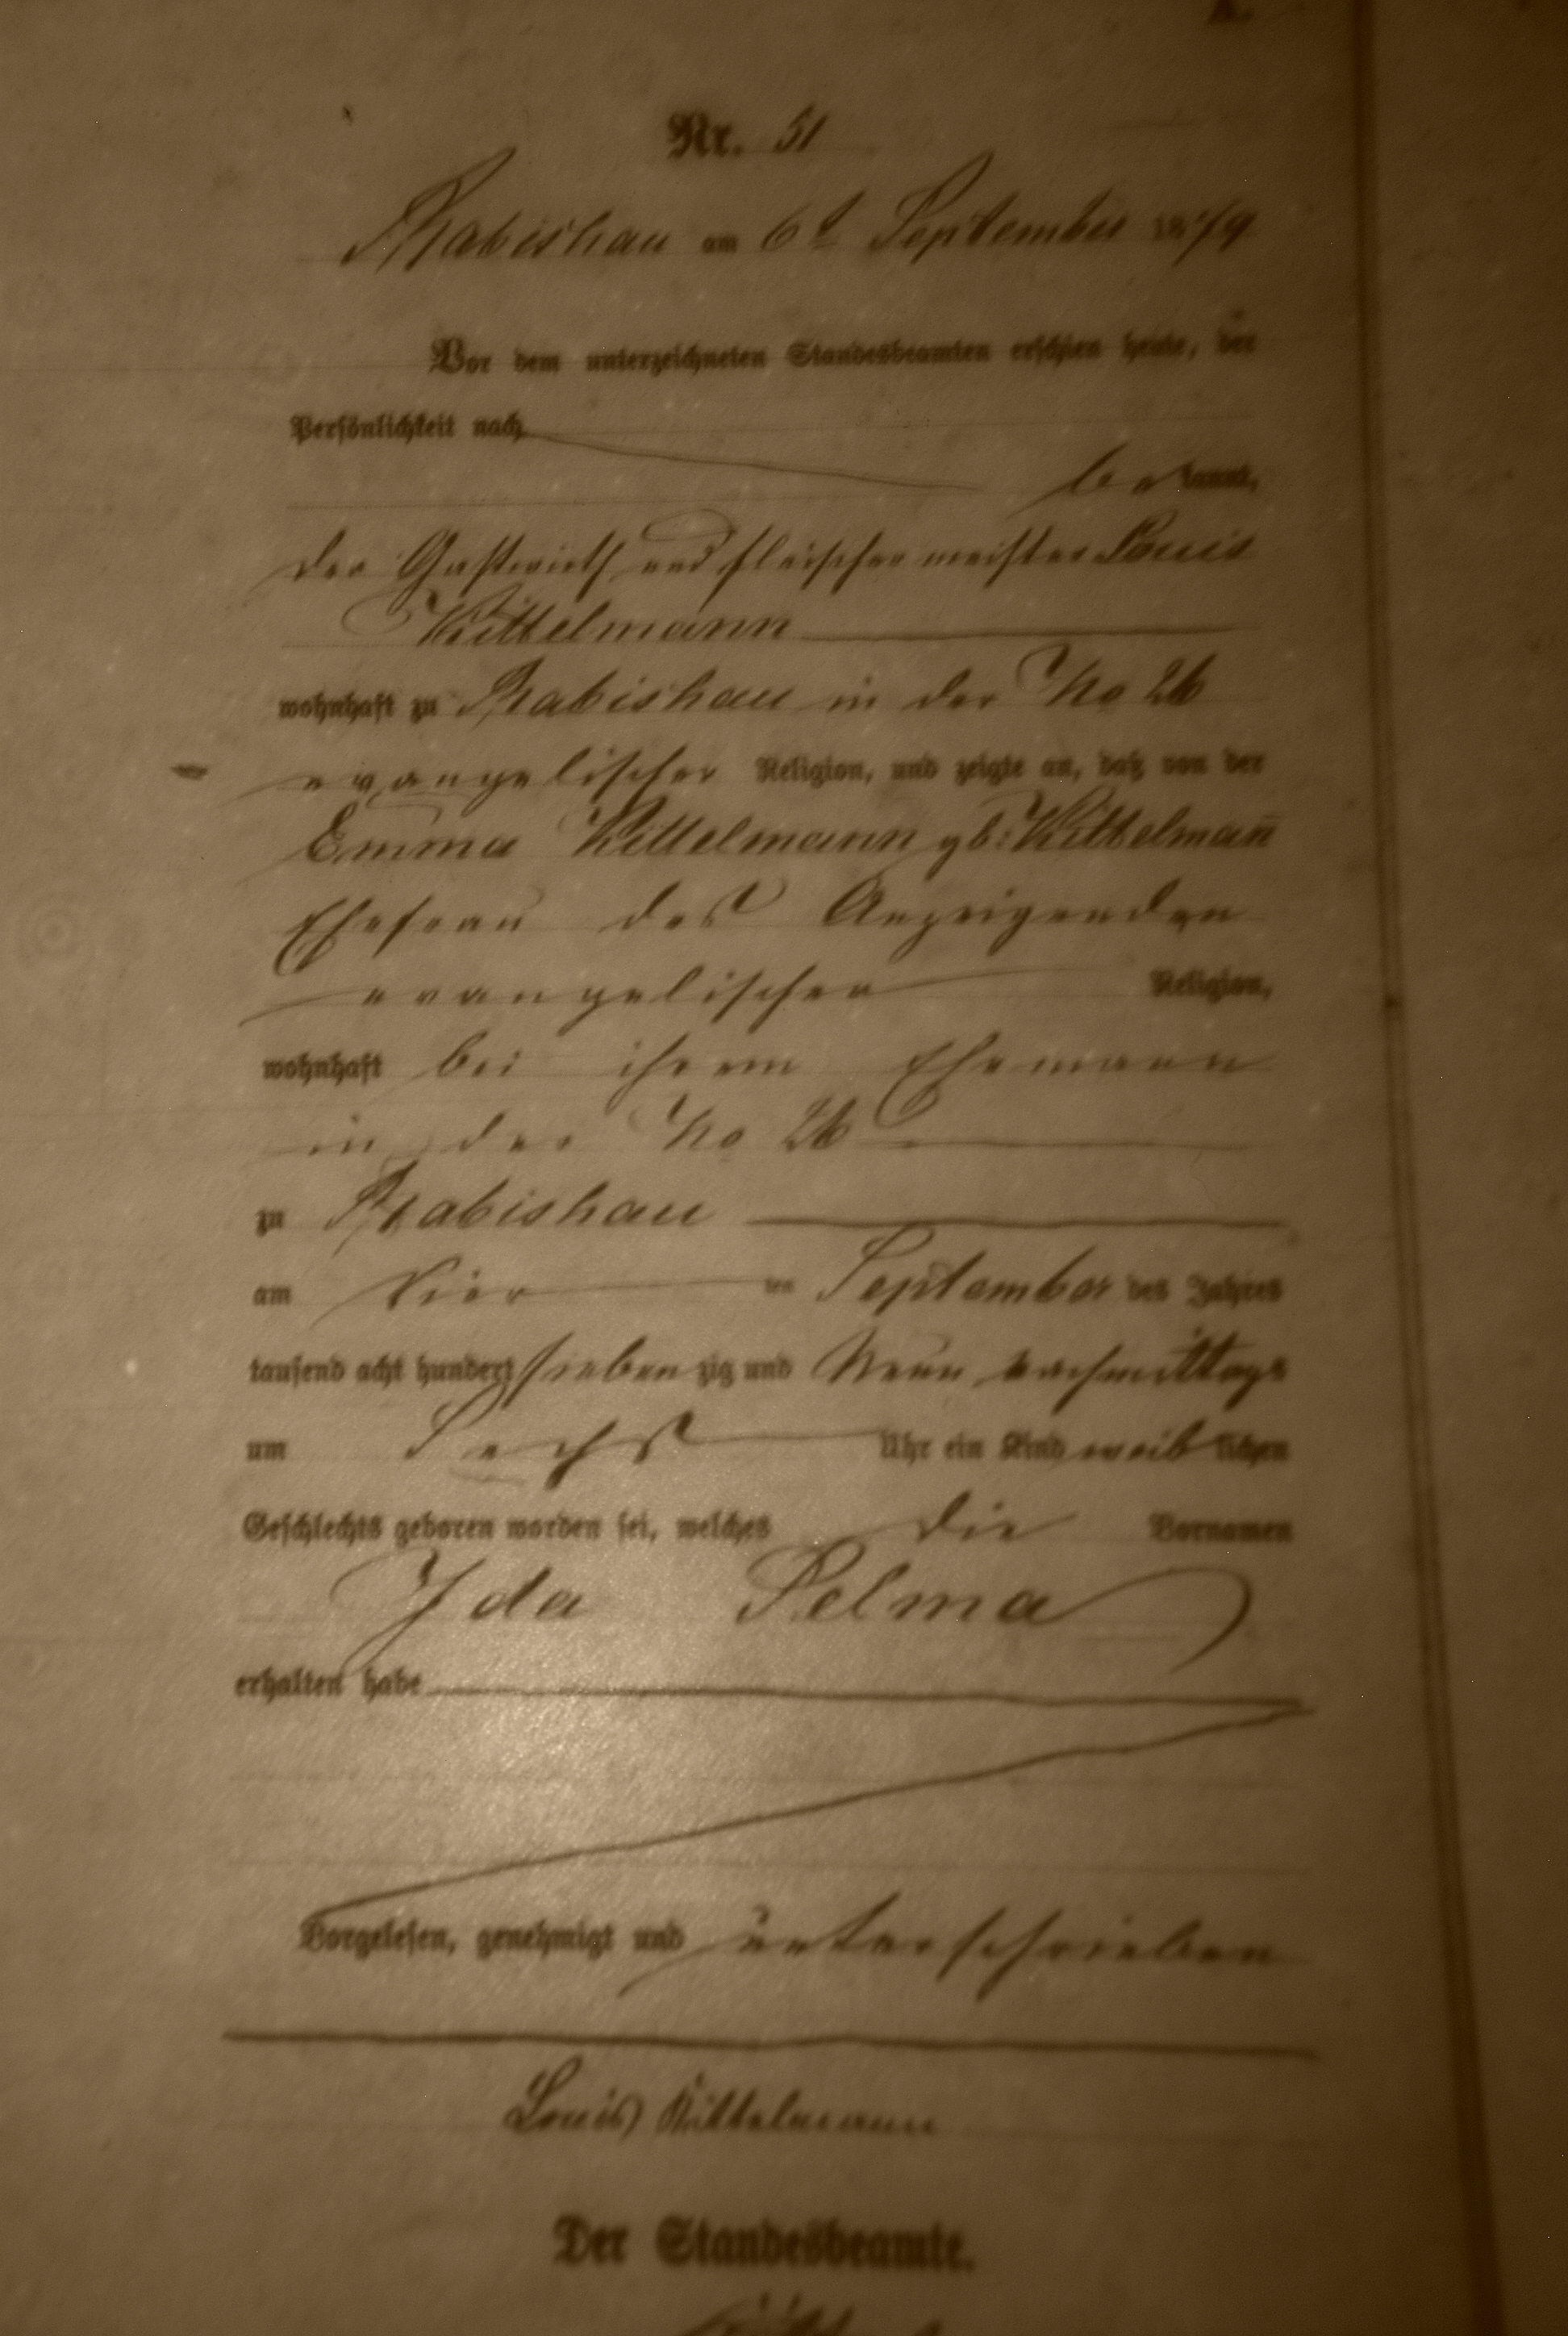 Nr. 51
Rabishau am 6t September 1879
Vor dem unterzeichneten Standesbeamten erschien heute, der
Persönlichkeit nach
bekannt,
der Gastwirth und Fleischermeister Louis
Kittelmann
wohnhaft zu Rabishau in der No 26
evangelischer Religion, und zeigte an, daß von der
Emma Kittelmann gb: Kittelman̄
Ehefrau des Anzeigenden
evangelischer Religion,
wohnhaft bei ihrem Ehemann
in der No 26
zu Rabishau
am Vier ten September des Jahres
tausend acht hundert sieben zig und Neun nachmittags
um Sechs Uhr ein Kind weiblichen
Geschlechts geboren worden sei, welches die Vornamen
Ida Selma
erhalten habe
Vorgelesen, genehmigt und unterschrieben
Louis Kittelmann
Der Standesbeamte.